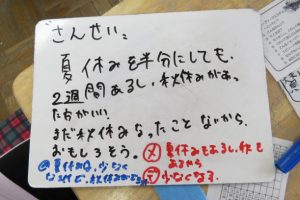 さんせい
夏休みを半分にしても、
2週間あるし、秋休みがあっ
た方がいい。
まだ秋休みなったことないから、
おもしろそう。
メ 夏休みもあるし、秋も
あるから
デ 少なくなる。
夏休みは、少なく
なるけど、秋休みが